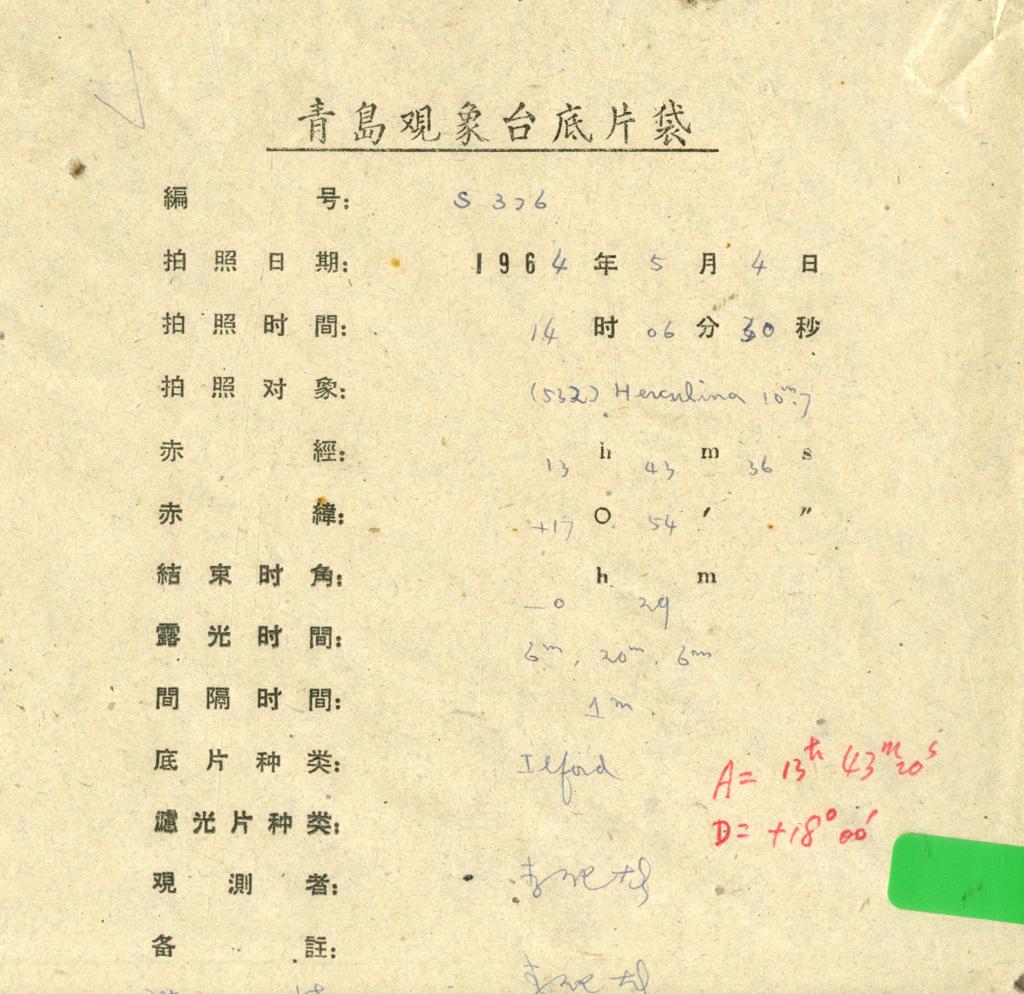 青島观象台底片袋
編号: S 376
拍照日期: 1964年5月4日
拍照时間: 14时06分30秒
拍照对象: (532) Herculina 10ᵐ.7
赤經: 13h 43m 36s
赤緯: +17° 54′ ″
結束时角: -0h 29m
露光时間: 6ᵐ, 20ᵐ, 6ᵐ
間隔时間: 1ᵐ
底片种类: Ilford
A= 13ʰ 43ᵐ 20ˢ
濾光片种类:
D= +18° 00′
观測者:
备註: